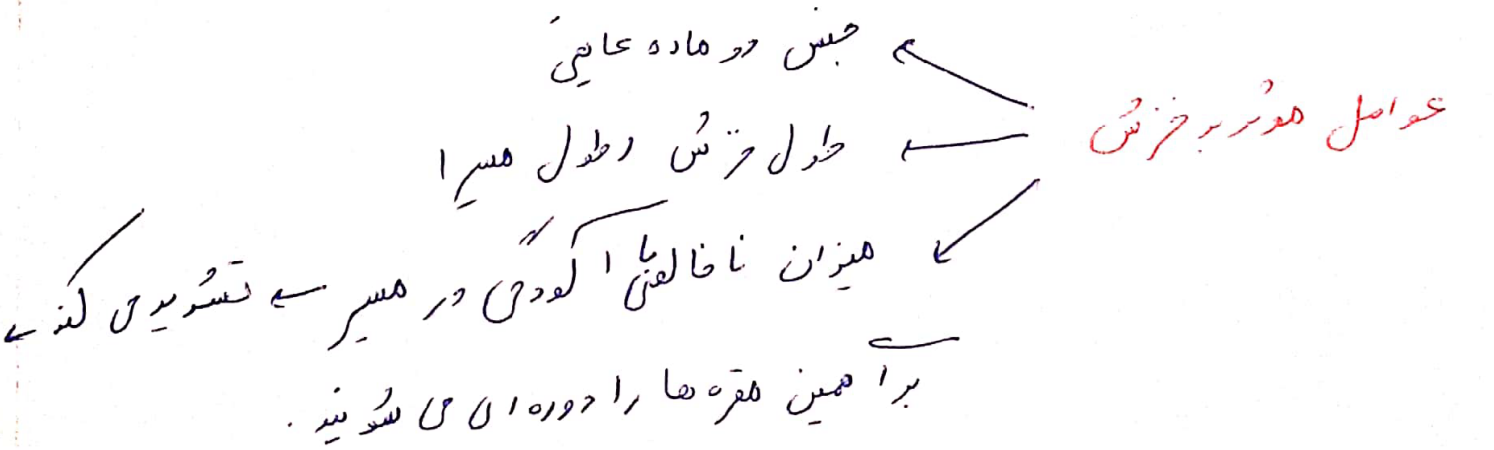 عوامل موثر بر خزش
← جنس دو ماده عایقی
← طول خزش (طول مسیر)
← میزان ناخالصی یا آلودگی در مسیر ← تشدید می کند ←
برای همین مقره ها را دوره ای می شویند.